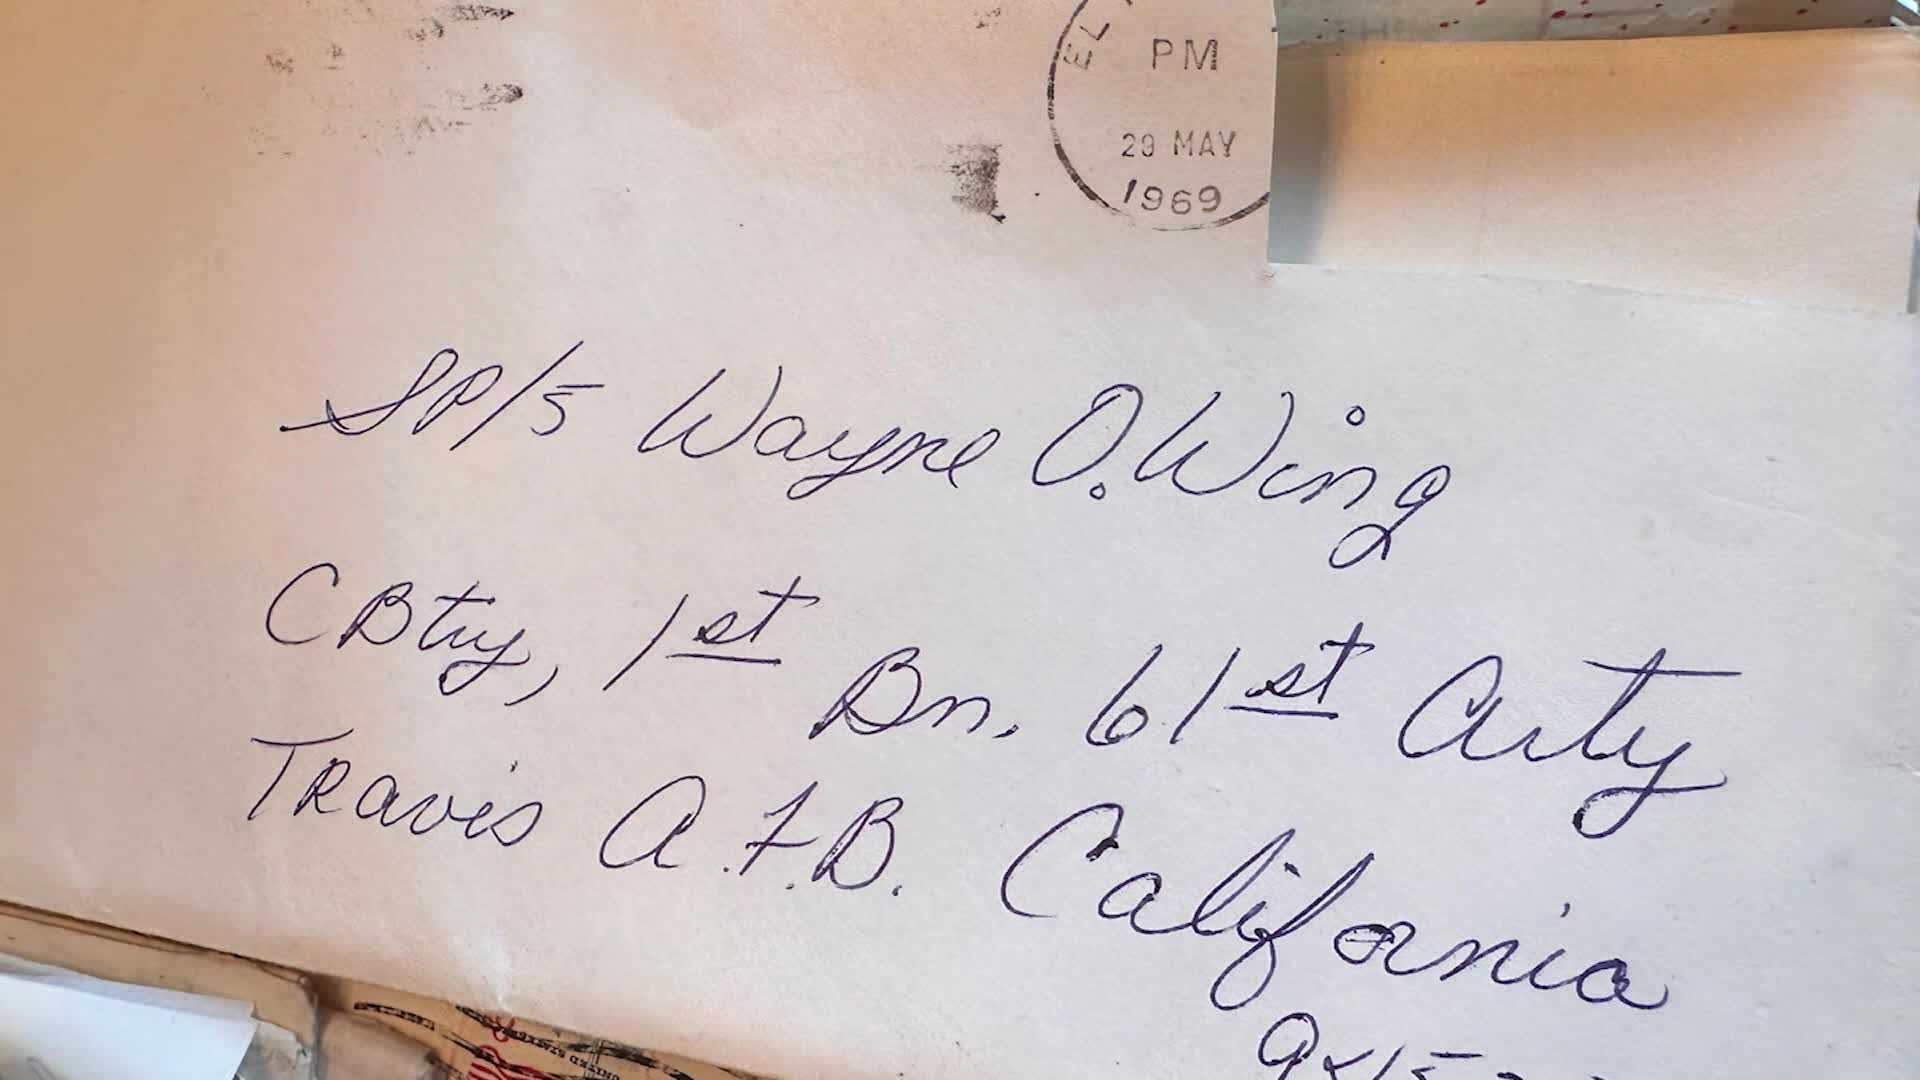 PM
29 MAY
1969
SP/5 Wayne O. Wing
C Btry, 1st Bn. 61st Arty
Travis A.F.B. California
UNITED STATES